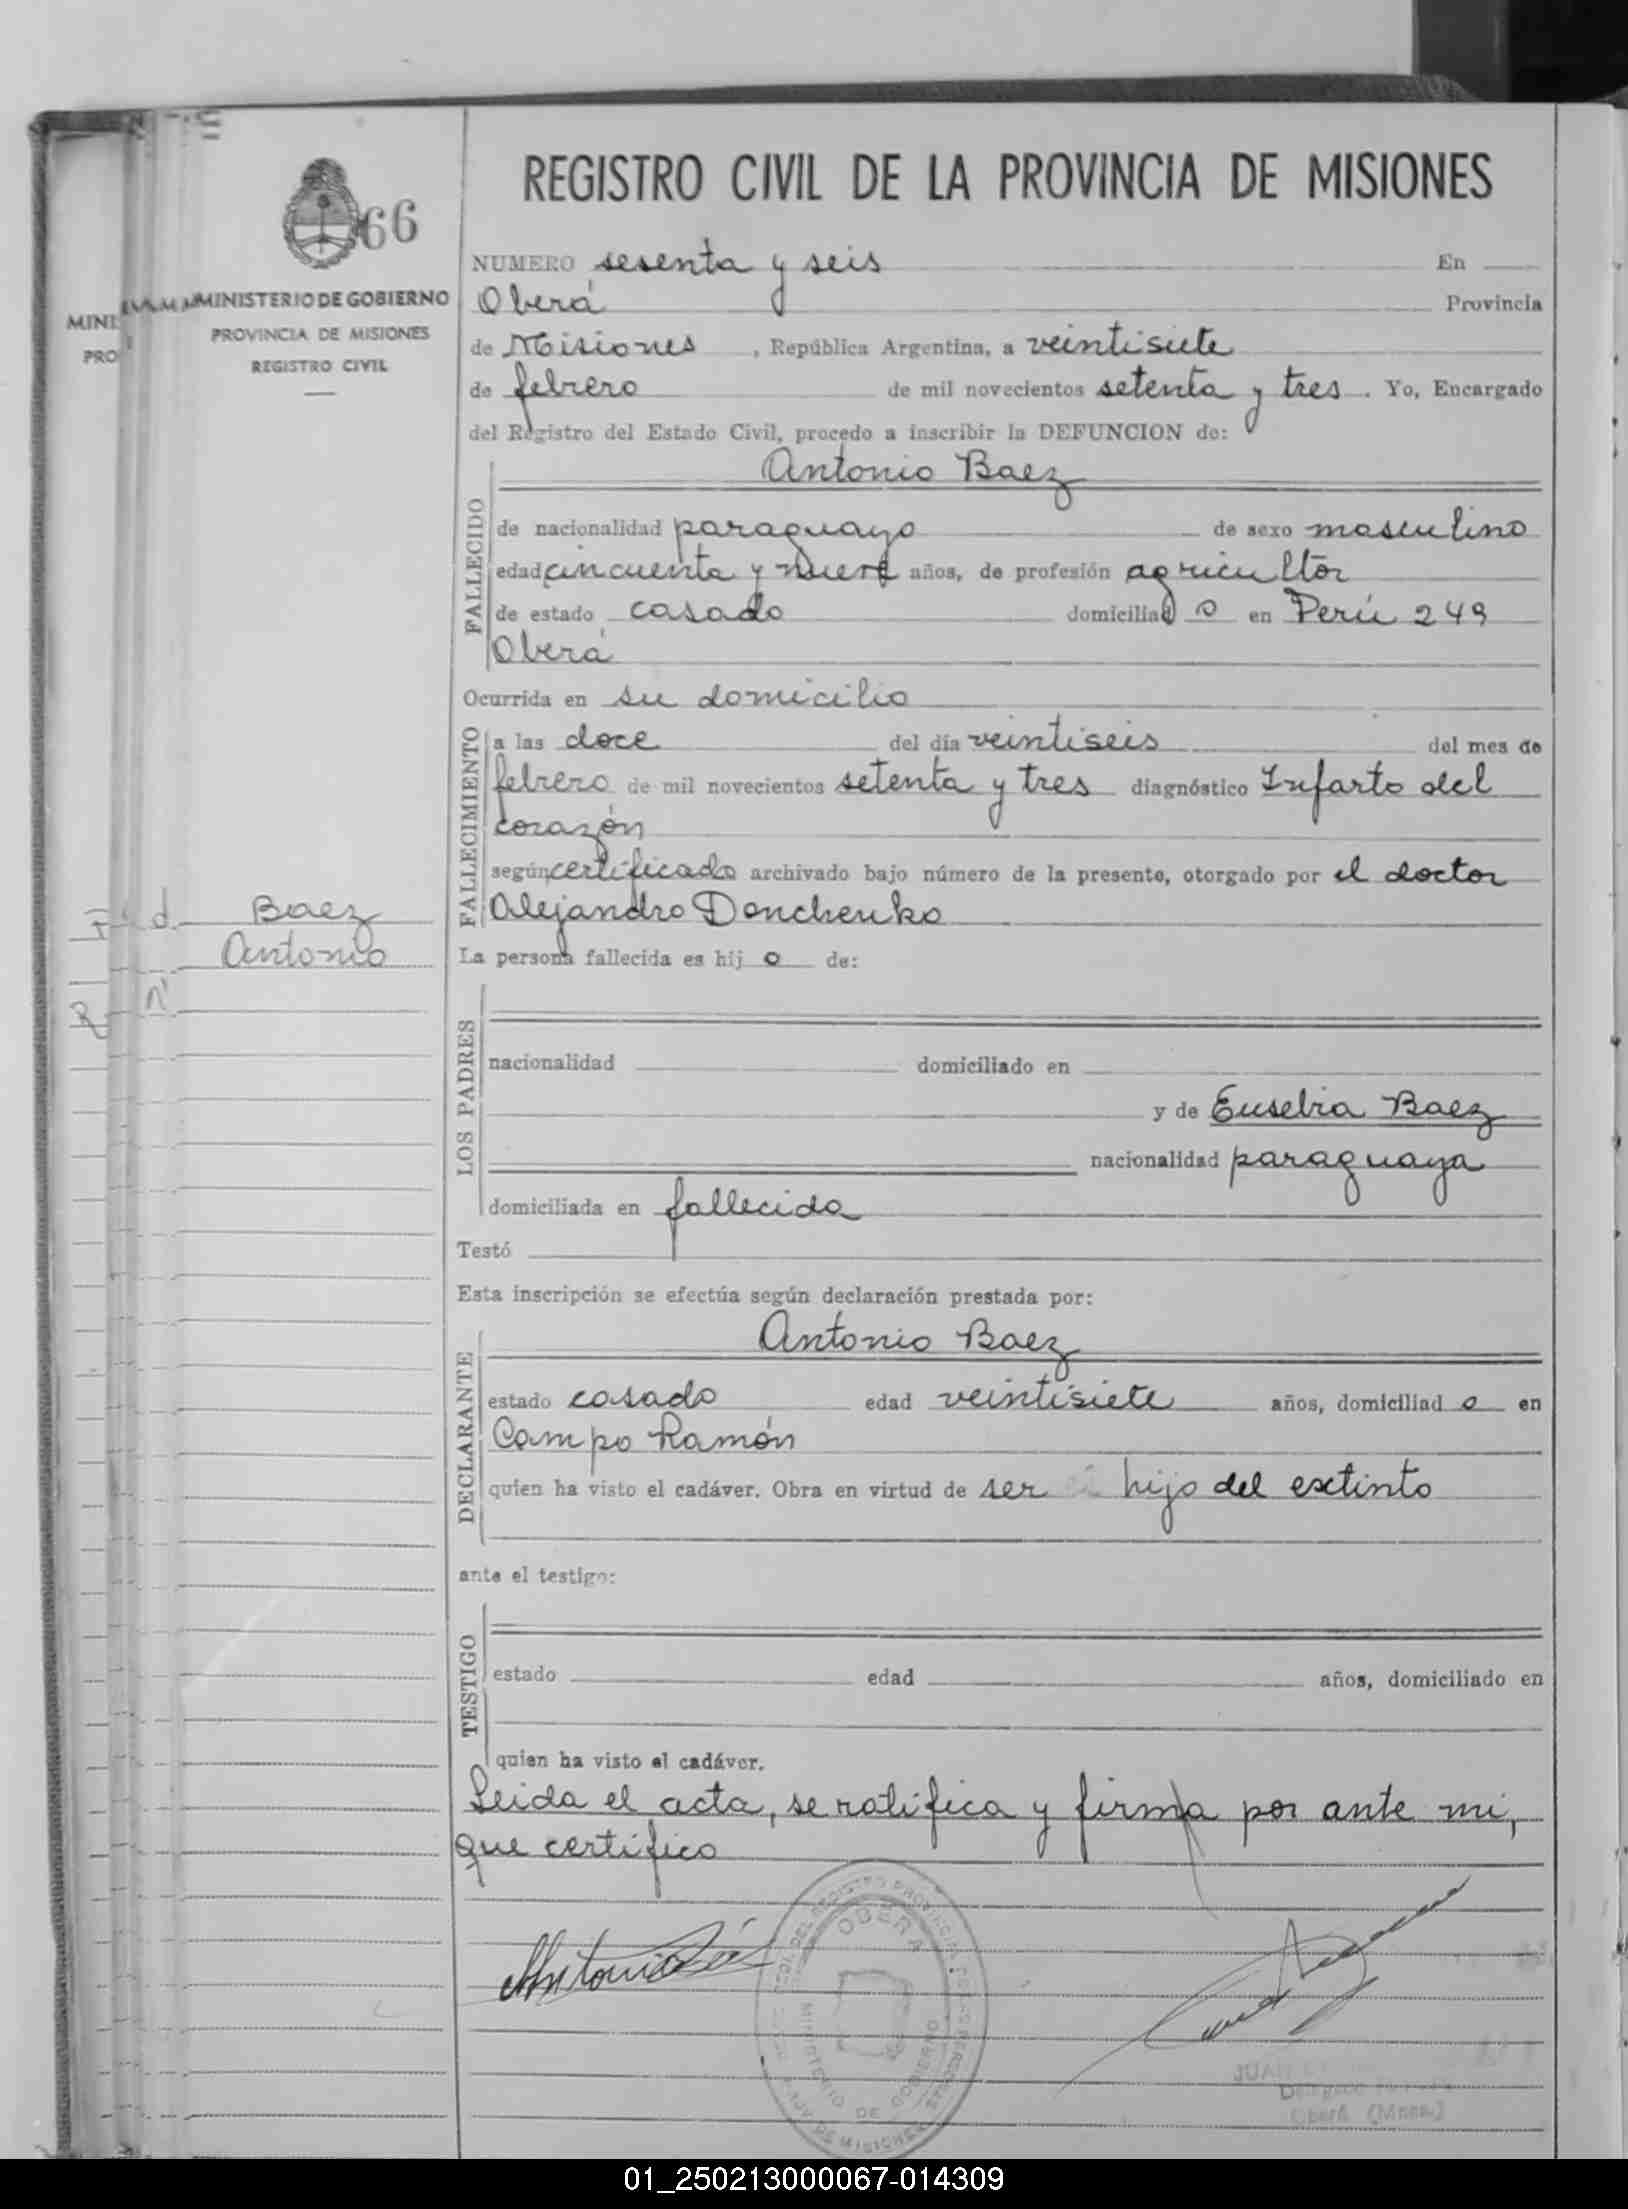 REGISTRO CIVIL DE LA PROVINCIA DE MISIONES
66
MINISTERIO DE GOBIERNO
PROVINCIA DE MISIONES
REGISTRO CIVIL
MINI
PRO
NUMERO sesenta y seis En
Oberá Provincia
de Misiones, República Argentina, a veintisiete
de febrero de mil novecientos setenta y tres. Yo, Encargado
del Registro del Estado Civil, procedo a inscribir la DEFUNCION de:
FALLECIDO
Antonio Baez
de nacionalidad paraguayo de sexo masculino
edad cincuenta y nueve años, de profesión agricultor
de estado casado domiciliado en Perú 249
Oberá
Ocurrida en su domicilio
FALLECIMIENTO
a las doce del día veintiseis del mes de
febrero de mil novecientos setenta y tres diagnóstico Infarto del
corazón
según certificado archivado bajo número de la presente, otorgado por el doctor
Alejandro Donchenko
Baez
Antonio
La persona fallecida es hijo de:
LOS PADRES
nacionalidad domiciliado en
y de Eusebia Baez
nacionalidad paraguaya
domiciliada en fallecida
Testó
Esta inscripción se efectúa según declaración prestada por:
DECLARANTE
Antonio Baez
estado casado edad veintisiete años, domiciliado en
Campo Ramón
quien ha visto el cadáver. Obra en virtud de ser hijo del extinto
ante el testigo:
TESTIGO
estado edad años, domiciliado en
quien ha visto el cadáver.
Leida el acta, se ratifica y firma por ante mi,
que certifico
OBERA
MINISTERIO DE GOBIERNO
JUAN
Oberá (Mnes.)
01_250213000067-014309